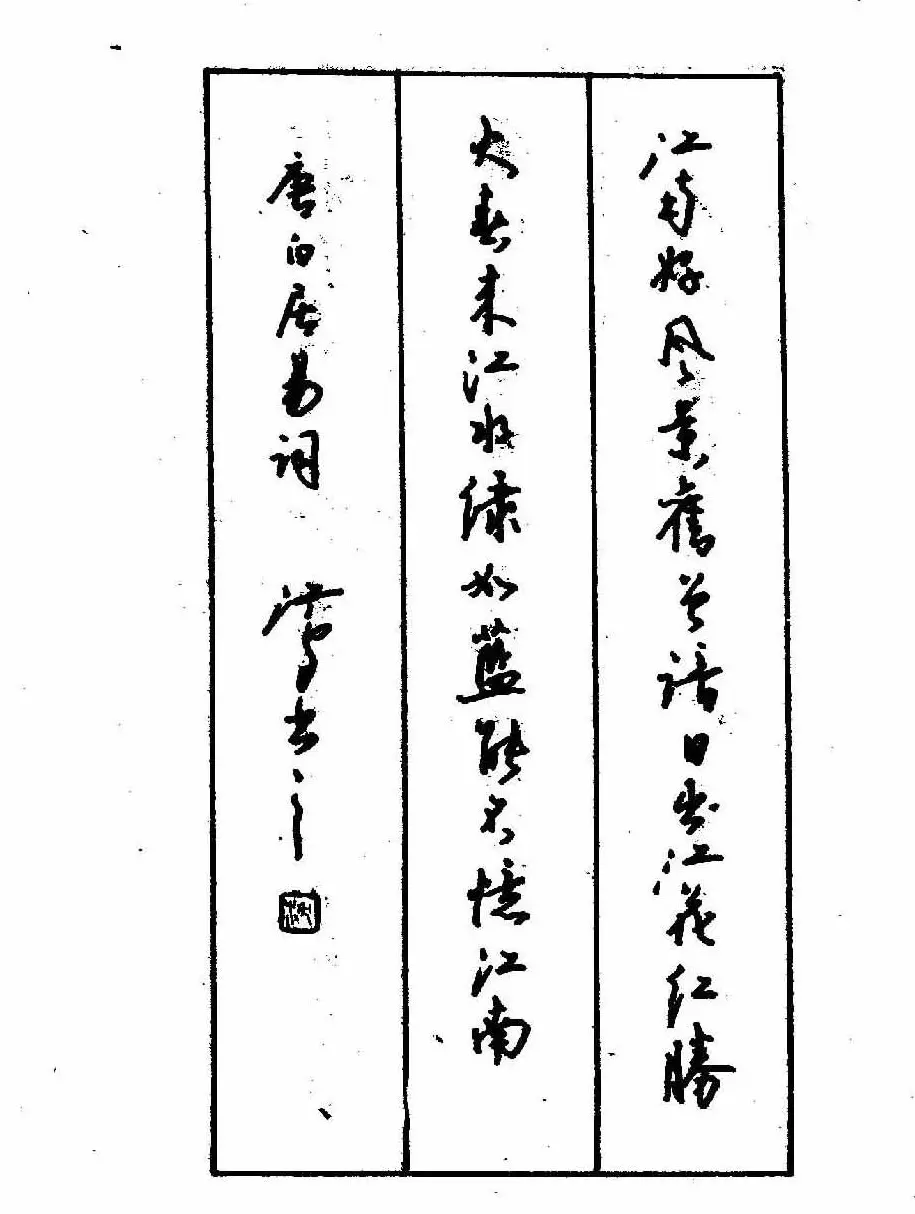 江南好风景舊曾諳日出江花红勝
火春来江水绿如蓝能不憶江南
唐白居易词 书之